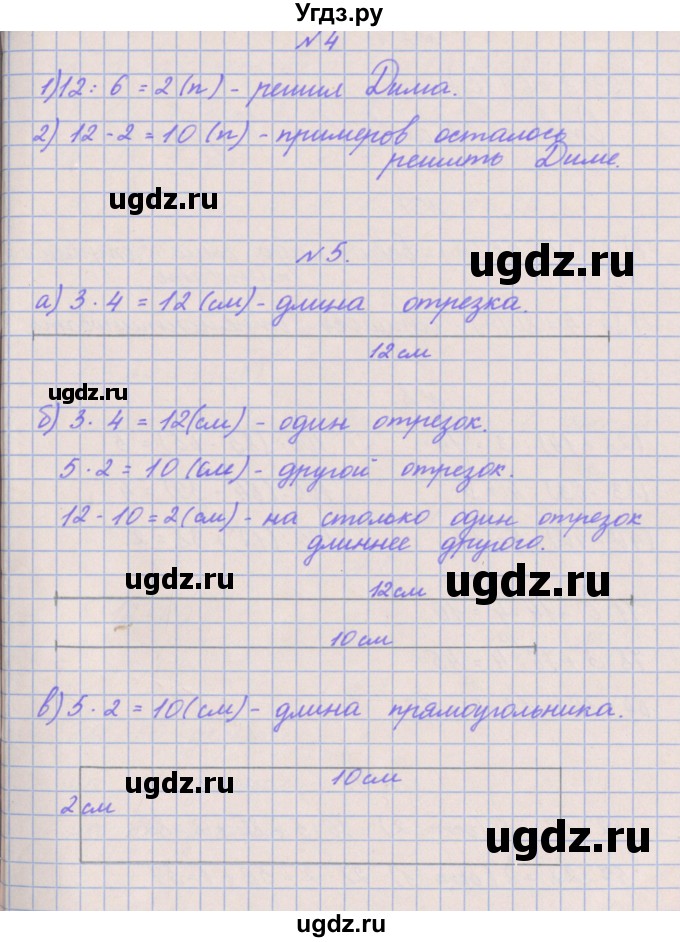 Угдз.ру
№4
1) 12 : 6 = 2 (п) - решил Дима.
2) 12 - 2 = 10 (п) - примеров осталось
решить Диме.
ugdz.ru
ugdz.ru
№5.
а) 3 · 4 = 12 (см) - длина отрезка.
12 см
ugdz.ru
б) 3 · 4 = 12 (см) - один отрезок.
5 · 2 = 10 (см) - другой отрезок.
12 - 10 = 2 (см) - на столько один отрезок
длиннее другого.
ugdz.ru
ugdz.ru
12 см
10 см
в) 5 · 2 = 10 (см) - длина прямоугольника.
10 см
ugdz.ru
2 см
ugdz.ru
ugdz.ru